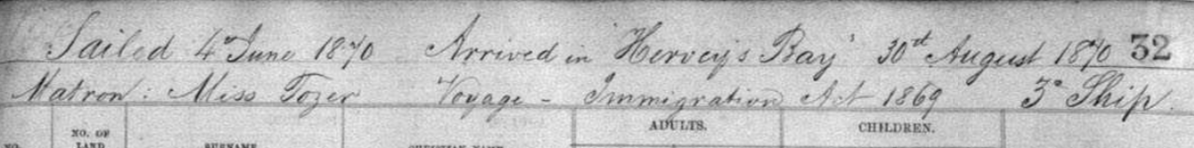 Sailed 4th June 1870 Arrived in "Hervey's Bay" 30th August 1870 32
Matron: Miss Tozer Voyage - Immigration Act 1869 3o Ship.
ADULTS. CHILDREN.
NO. OF
NO. LAND SURNAME CHRISTIAN NAME